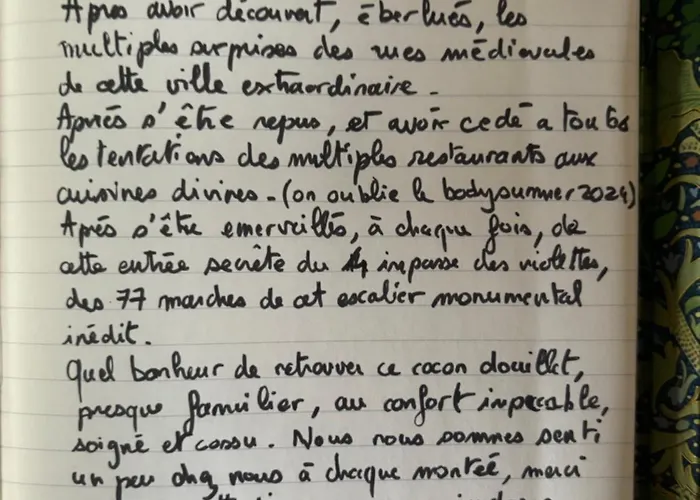 Après avoir découvert, éberlués, les
multiples surprises des rues médiévales
de cette ville extraordinaire.
Après s'être repus, et avoir cedé a toutes
les tentations des multiples restaurants aux
cuisines divines. (on oublie le bodysummer 2024)
Après s'être emerveillés, à chaque fois, de
cette entrée secrête du 14 impasse des violettes,
des 77 marches de cet escalier monumental
inédit.
Quel bonheur de retrouver ce cocon douillet,
presque familier, au confort impeccable,
soigné et cossu. Nous nous sommes senti
un peu chez nous à chaque montée, merci